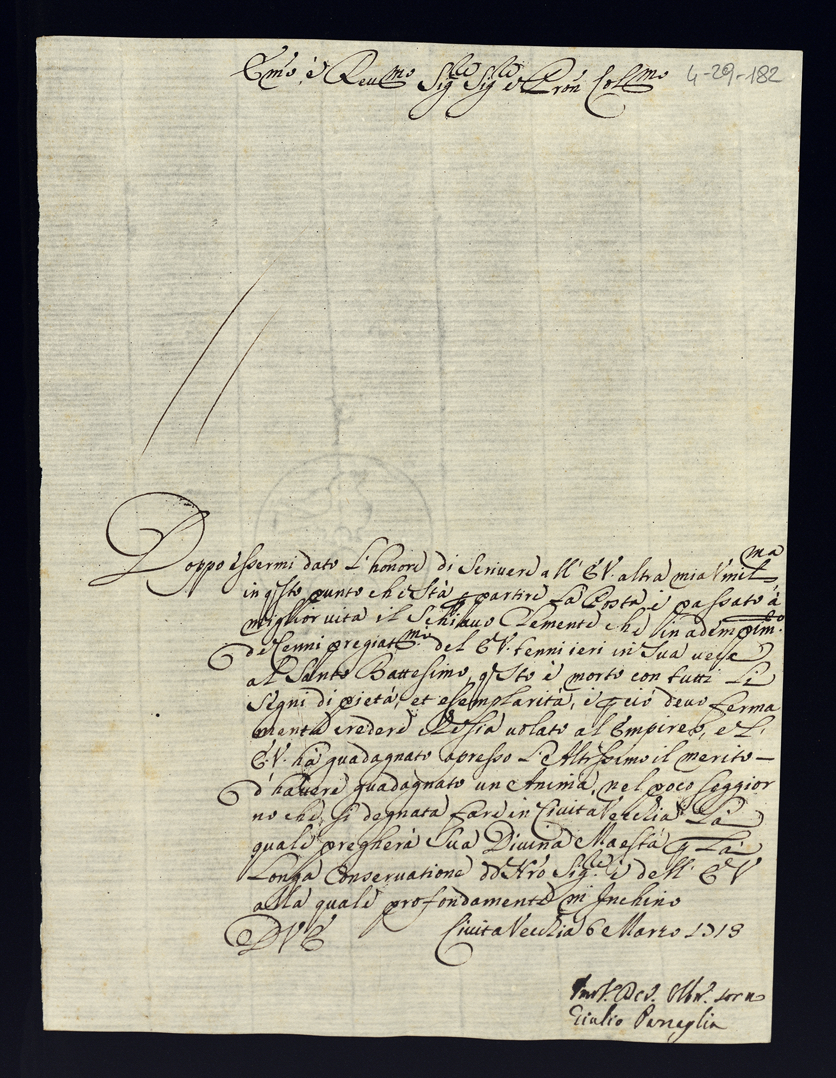 Em̃o, e Reu.mo Sig.re Sig.re e Prõn Col.mo
4-29-182
Doppo essermi dato l'honore di scrivere all' E.V. altra mia Vmil.ma
in q.sto punto che stà p partire la Posta è passato à
miglior vita il Schiauo Clemente che in adempim.to
de Cenni pregiat.mi del E.V. tenni ieri in sua vece
al Santo Battesimo, q.sto è morto con tutti li
segni di pietà, et esemplarità, è p ciò deuo ferma
mente credere che sia uolato al Empireo, e l'
E.V. hà guadagnato apresso l'Altissimo il merito
d'hauere guadagnato un Anima, nel poco seggior
no che si degnata fare in Civita Vecchia, la
quale pregherà Sua Divina Maestà p la
longa conservatione di Nrõ Sig.re e dell' E V
alla quale profondamente m' Inchino
D V E
Civita Vecchia 6 Marzo 1718
Giulio